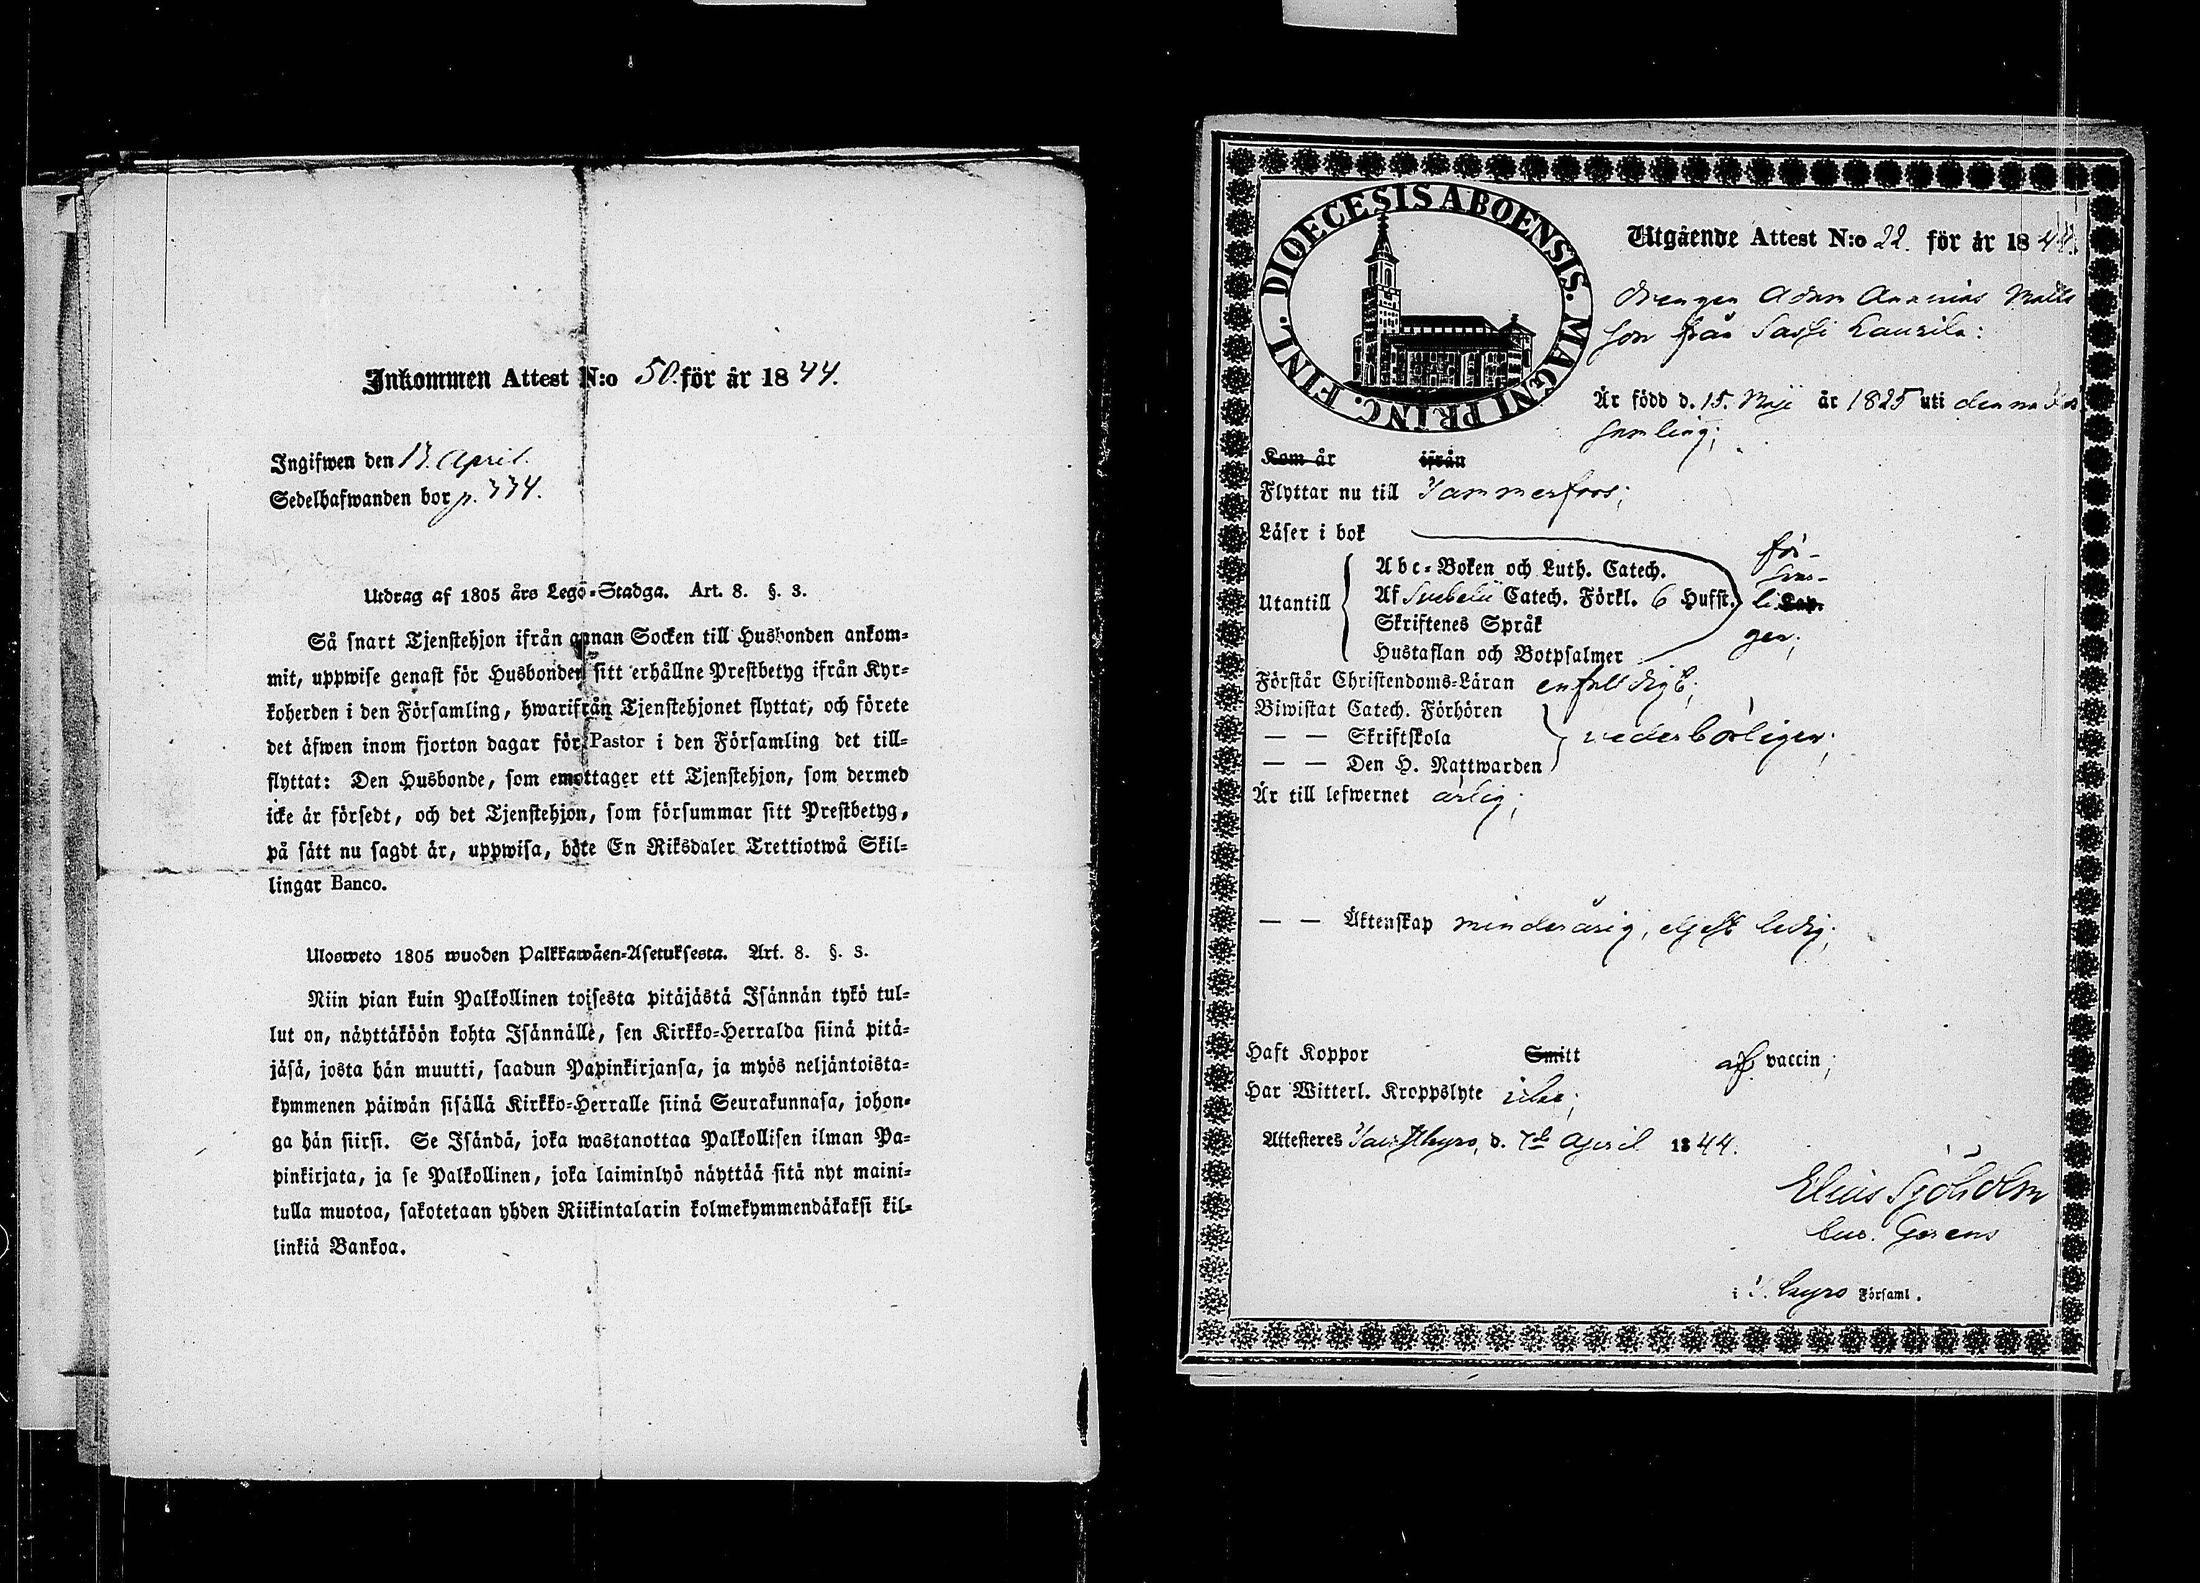 Inkommen Attest N:o 50. för år 1844.
Ingifwen den 13. April.
Sedelhafwanden bor p. 334.
Utdrag af 1805 års Lego-Stadga. Art. 8. §. 3.
Så snart Tjenstehjon ifrån annan Socken till Husbonden ankom-
mit, uppwise genast för Husbonden sitt erhållne Prestbetyg ifrån Kyr-
koherden i den Församling, hwarifrån Tjenstehjonet flyttat, och förete
det äfwen inom fjorton dagar för Pastor i den Församling det till-
flyttat: Den Husbonde, som emottager ett Tjenstehjon, som dermed
icke är försedt, och det Tjenstehjon, som försummar sitt Prestbetyg,
på sätt nu sagdt är, uppwisa, böte En Riksdaler Trettiotwå Skil-
lingar Banco.
Ulosweto 1805 wuoden Palkkawäen-Asetuksesta. Art. 8. §. 3.
Niin pian kuin Palkollinen toisesta pitäjästä Isännän tykö tul-
lut on, näyttäköön kohta Isännälle, sen Kirkko-Herralda siinä pitä-
jäsä, josta hän muutti, saadun Papinkirjansa, ja myös neljäntoista-
kymmenen päiwän sisällä Kirkko-Herralle siinä Seurakunnasa, johon-
ga hän siirsi. Se Isändä, joka wastanottaa Palkollisen ilman Pa-
pinkirjata, ja se Palkollinen, joka laiminlyö näyttää sitä nyt maini-
tulla muotoa, sakotetaan yhden Riikintalarin kolmekymmendäkaksi kil-
linkiä Bankoa.
DIOECESIS ABOENSIS. MAGNI PRINC. FINL.
Utgående Attest N:o 22. för år 1844.
Drengen Adam Ananias Matts
son från Sassi Laurila:
Är född d. 15. Maji år 1825 uti denna för
samling;
Kom år ifrån
Flyttar nu till Tammerfors;
Läser i bok
Utantill
Abc-Boken och Luth. Catech.
Af Svebelii Catech. Förkl. 6 Hufst.
Skriftenes Språk
Hustaflan och Botpsalmer
för-
svar-
li Kap.
gen;
Förstår Christendoms-Läran enfaldigt;
Biwistat Catech. Förhören
— — Skriftskola
— — Den H. Nattwarden
vederbörligen;
Är till lefwernet ärlig;
— — Äktenskap minderårig, eljest ledig;
Haft Koppor Smitt af vaccin;
Har Witterl. Kroppslyte icke;
Attesteres Tavastkyro, d. 7de April 1844.
Elias Sjöholm
Cur. Gerens
i T. kyro Församl.